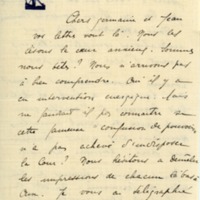 Chers Germaine et Jean
vos lettres sont là. Nous les
lisons le cœur anxieux. Sommes
nous bêtes? Nous n'arrivons pas
à bien comprendre. Qu'il y a
eu intervention énergique. Mais
ne faudrait-il pas connaître
cette fameuse "confusion de pouvoirs"
n'a pas achevé d'indisposer
la Cour? Nous hésitons à démêler
les impressions de chacun là-bas.
Je vous ai télégraphié